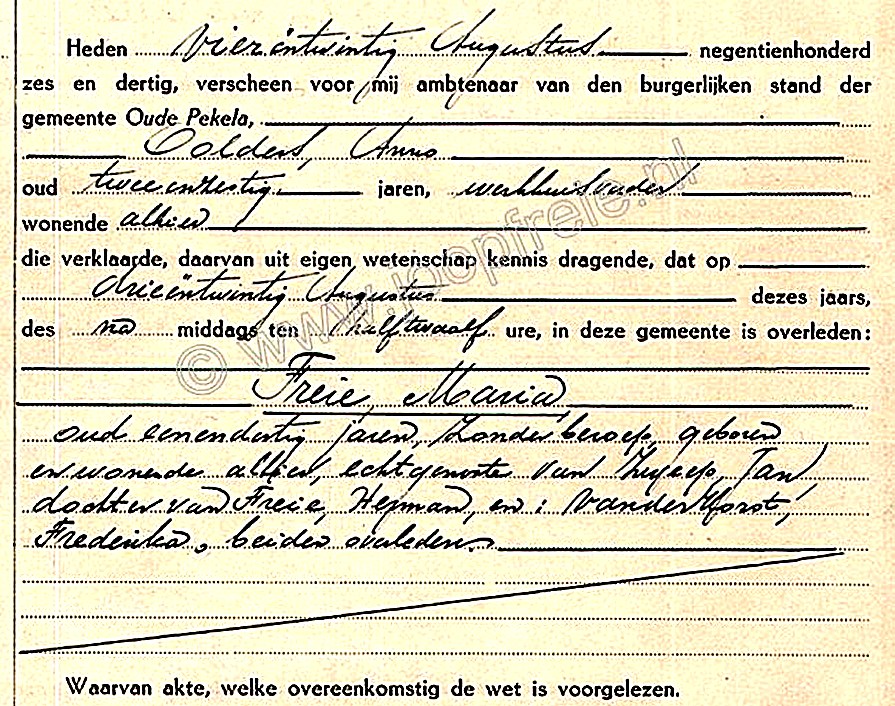 Heden vierëntwintig Augustus negentienhonderd
zes en dertig, verscheen voor mij ambtenaar van den burgerlijken stand der
gemeente Oude Pekela,
Colders, Anno
oud twee en zestig jaren, werkhuisvader
wonende alhier
die verklaarde, daarvan uit eigen wetenschap kennis dragende, dat op
drieëntwintig Augustus dezes jaars,
des na middags ten half twaalf ure, in deze gemeente is overleden:
© www.joopfreie.nl
Freie, Maria,
oud eenendertig jaren, zonder beroep, geboren
en wonende alhier, echtgenoote van Jan,
dochter van Freie, Herman, en: Van der Horst,
Frederika, beiden overleden.
Waarvan akte, welke overeenkomstig de wet is voorgelezen.